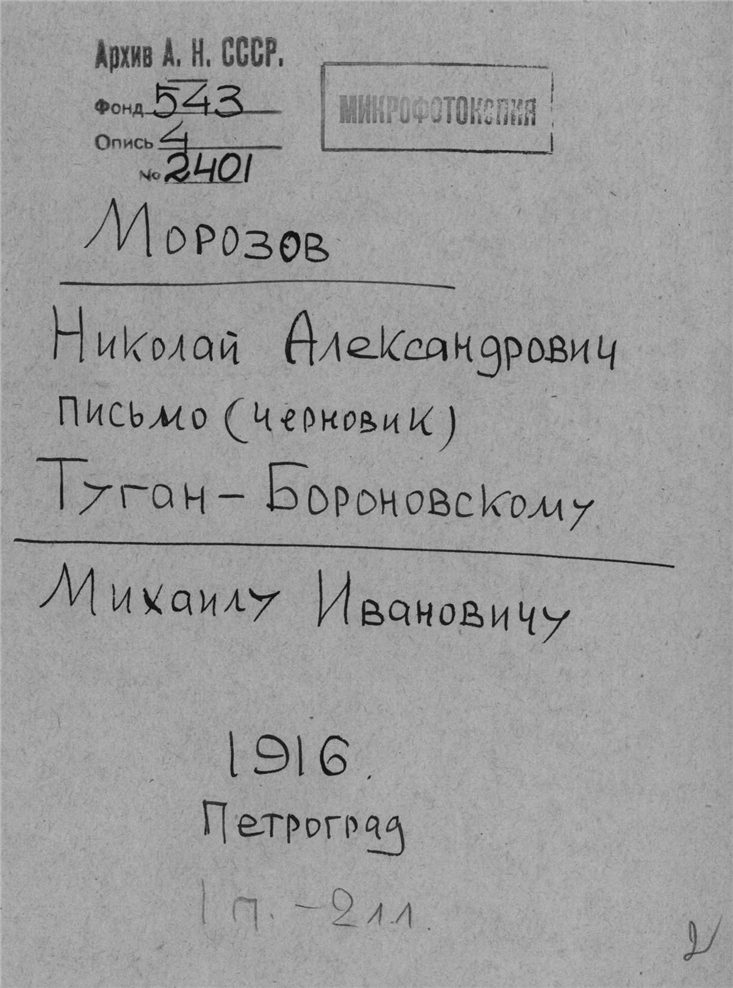 Архив А. Н. СССР.
Фонд 543
Опись 4
№ 2401
МИКРОФОТОКОПИЯ
Морозов
Николай Александрович
письмо (черновик)
Туган-Бороновскому
Михаилу Ивановичу
1916.
Петроград
1 п. - 2 лл.